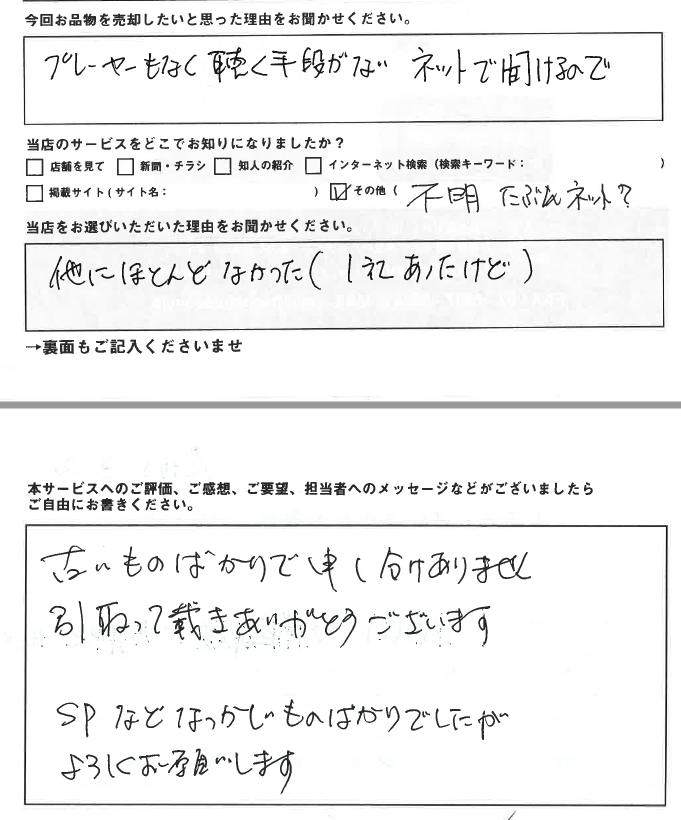 今回お品物を売却したいと思った理由をお聞かせください。
プレーヤーもなく 聴く手段がない ネットで聞けるので
当店のサービスをどこでお知りになりましたか?
□ 店舗を見て □ 新聞・チラシ □ 知人の紹介 □ インターネット検索(検索キーワード: )
□ 掲載サイト(サイト名: ) ☑ その他( 不明 たぶんネット?
当店をお選びいただいた理由をお聞かせください。
他にほとんどなかった( 1社あったけど )
→裏面もご記入くださいませ
本サービスへのご評価、ご感想、ご要望、担当者へのメッセージなどがございましたら
ご自由にお書きください。
古いものばかりで申し分けありません
引取って戴きありがとうございます
SPなどなつかしいものばかりでしたが
よろしくお願いします